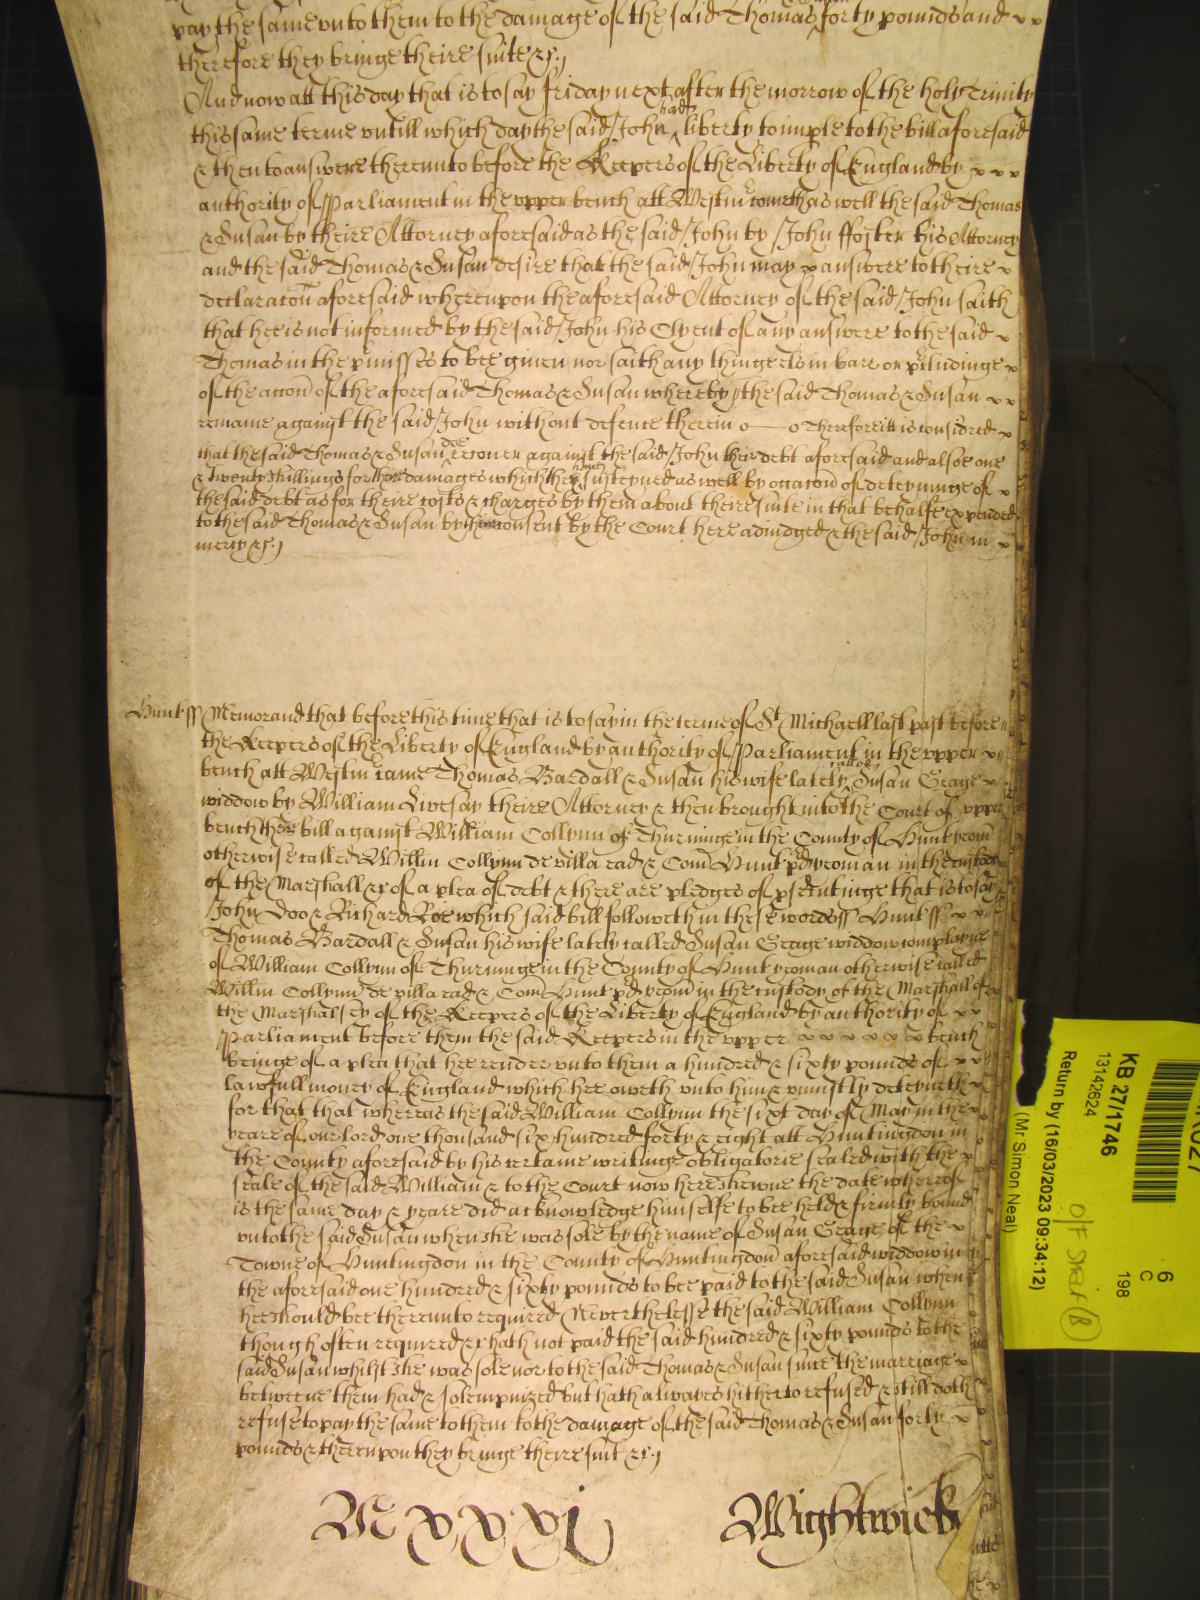 pay the same unto them to the damage of the said Thomas forty pounds and
therefore they bringe theire suite &c.
And now att this day that is to say friday next after the morrow of the holy Trinity
this same terme untill which day the said John had liberty to imple to the bill aforesaid
& then to answere thereunto before the Keepers of the Liberty of England by
authority of Parliament in the upper bench att Westm cometh as well the said Thomas
& Susan by theire Attorney aforesaid as the said John by John ffoster his Attorney
and the said Thomas & Susan desire that the said John may answere to theire
declaracon aforesaid whereupon the aforesaid Attorney of the said John saith
that hee is not informed by the said John his Clyent of any answere to the said
Thomas in the pmisses to bee given nor saith any thinge els in barr or pcludinge
of the accon of the aforesaid Thomas & Susan whereby the said Thomas & Susan
remaine against the said John without defence therein Therefore itt is considred
that the said Thomas & Susan doe recover against the said John their debt aforesaid and alsoe one
& Twenty shillings for their damages which they have susteyned as well by occacon of deteyninge of
the said debt as for theire costs & charges by them about theire suite in that behalfe expended
to the said Thomas & Susan by their consent by the Court here adiudged & the said John in
mercy &c.
Hunt ss Memorand that before this time that is to say in the terme of St Michaell last past before
the Keepers of the Liberty of England by authority of Parliament in the upper
bench att Westm came Thomas Bardall & Susan his wife lately called Susan Geage
widdow by William Livesay theire Attorney & then brought into the Court of upper
bench there bill against William Collynn of Thurninge in the County of Hunt yeom
otherwise called Willm Collynn de villa ead & Com Hunt pd yeoman in the custody
of the Marshall &c of a plea of debt & there are pledges of psecutinge that is to say
John Doo & Richard Roe which said bill followeth in these words ss Hunt ss
Thomas Bardall & Susan his wife lately called Susan Geage widdow complayne
of William Collynn of Thurninge in the County of Hunt yeoman otherwise called
Willm Collynn de villa ead & Com Hunt pd yeom in the custody of the Marshall of
the Marshalsey of the Keepers of the Liberty of England by authority of
Parliament before them the said Keepers in the upper bench
beinge of a plea that hee render unto them a hundred & sixty pounds of
lawfull money of England which hee oweth unto him & uniustly deteyneth
for that that whereas the said William Collynn the sixt day of May in the
yeare of our lord one thousand six hundred forty & eight att Huntingdon in
the County aforesaid by his certaine writinge obligatorie sealed with the
seale of the said William & to the Court now here shewne the date whereof
is the same day & yeare did acknowledge himselfe to bee held & firmly bound
unto the said Susan when she was sole by the name of Susan Geage of the
Towne of Huntingdon in the County of Huntingdon aforesaid widdow in
the aforesaid one hundred & sixty pounds to bee paid to the said Susan when
hee should bee thereunto required Neverthelesse the said William Collynn
though often required &c hath not paid the said hundred & sixty pounds to the
said Susan whilst she was sole nor to the said Thomas & Susan since the marriage
betweene them had & solempnized but hath alwayes hitherto refused & still doth
refuse to pay the same to them to the damage of the said Thomas & Susan forty
pounds & thereupon they bringe theire suit &c.
M xxxj Wightwick
KB 27/1746
13142624
Return by (16/03/2023 09:34:12)
(Mr Simon Neal)
6
C
198
O/F Shelf (B)